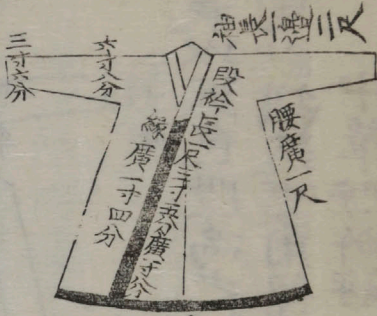 袖長一邊二尺
腰廣一尺
段衿長一尺三寸五分廣寸分
縇廣一寸四分
六寸八分
三寸六分